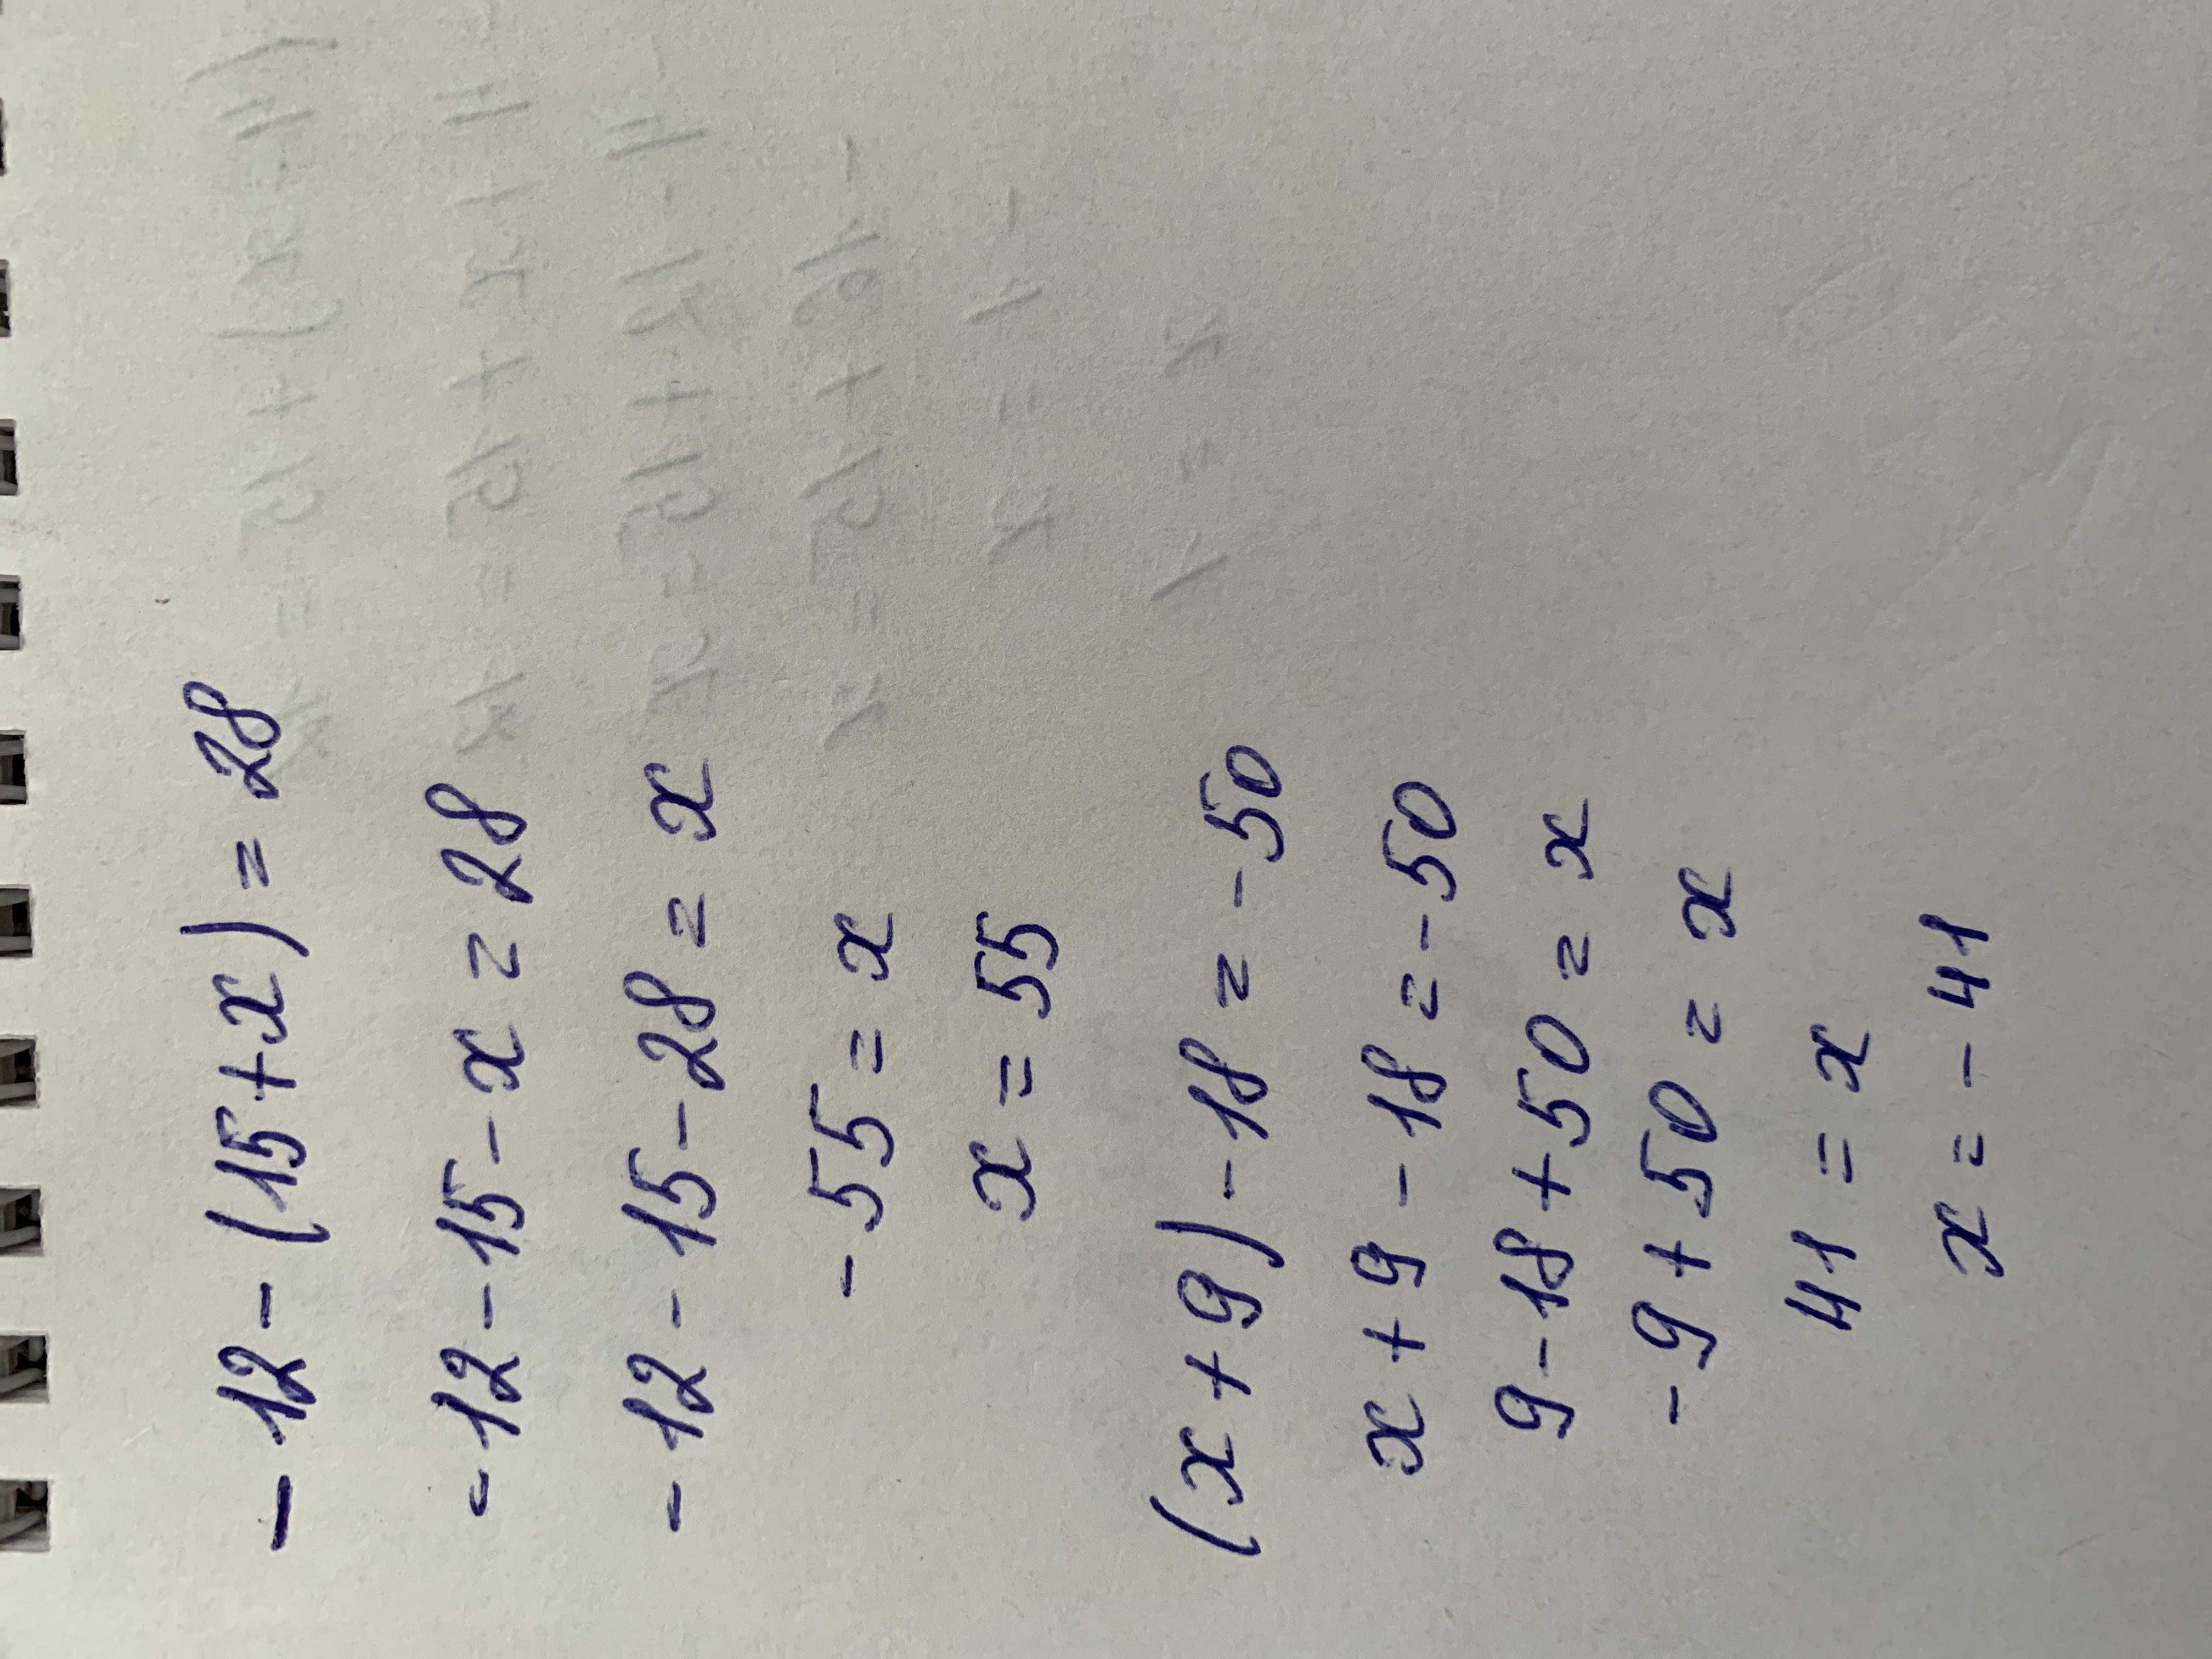 -12-(15+x)=28
-12-15-x=28
-12-15-28=x
-55=x
x=55
(x+9)-18=-50
x+9-18=-50
9-18+50=x
-9+50=x
41=x
x=-41